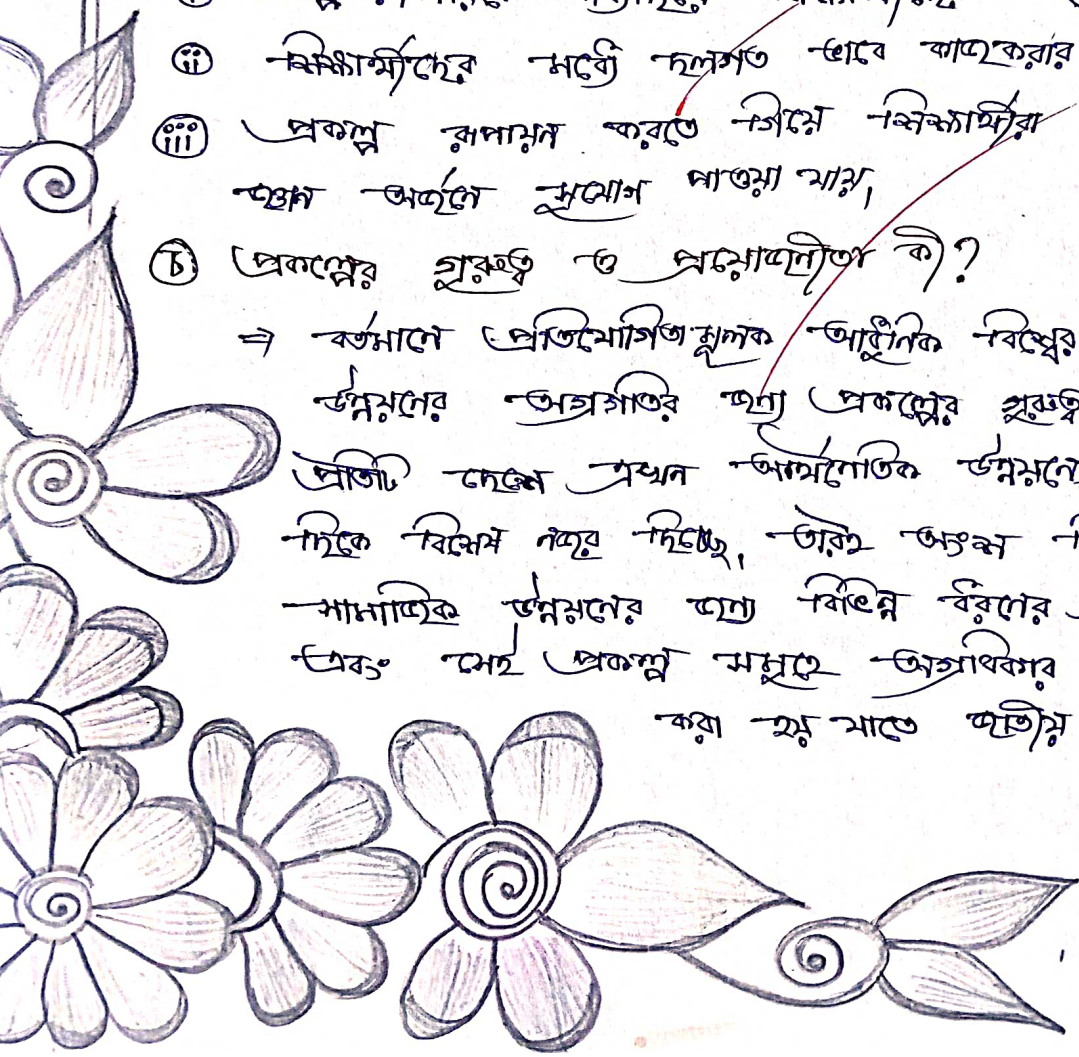 ii শিক্ষার্থীদের মধ্যে দলগত ভাবে কাজকরার
iii প্রকল্প রূপায়ন করতে গিয়ে শিক্ষার্থীরা
জ্ঞান অর্জনে সুযোগ পাওয়া যায়।
চ প্রকল্পের গুরুত্ব ও প্রয়োজনীতা কী?
⇒ বর্তমানে প্রতিযোগিতামূলক আধুনিক বিশ্বের
উন্নয়নের অগ্রগতির জন্য প্রকল্পের গুরুত্ব
প্রতিটি দেশে এখন আর্থনৈতিক উন্নয়নে
দিকে বিশেষ নজর দিচ্ছে। তারই অংশ
সামাজিক উন্নয়নের জন্য বিভিন্ন ধরনের
এবং সেই প্রকল্প সমুহে অগ্রাধিকার
করা হয় যাতে জাতীয়